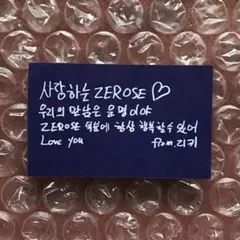 사랑하는 ZEROSE ♡
우리의 만남은 운명이야
ZEROSE 덕분에 항상 행복할 수 있어
Love you from.리키